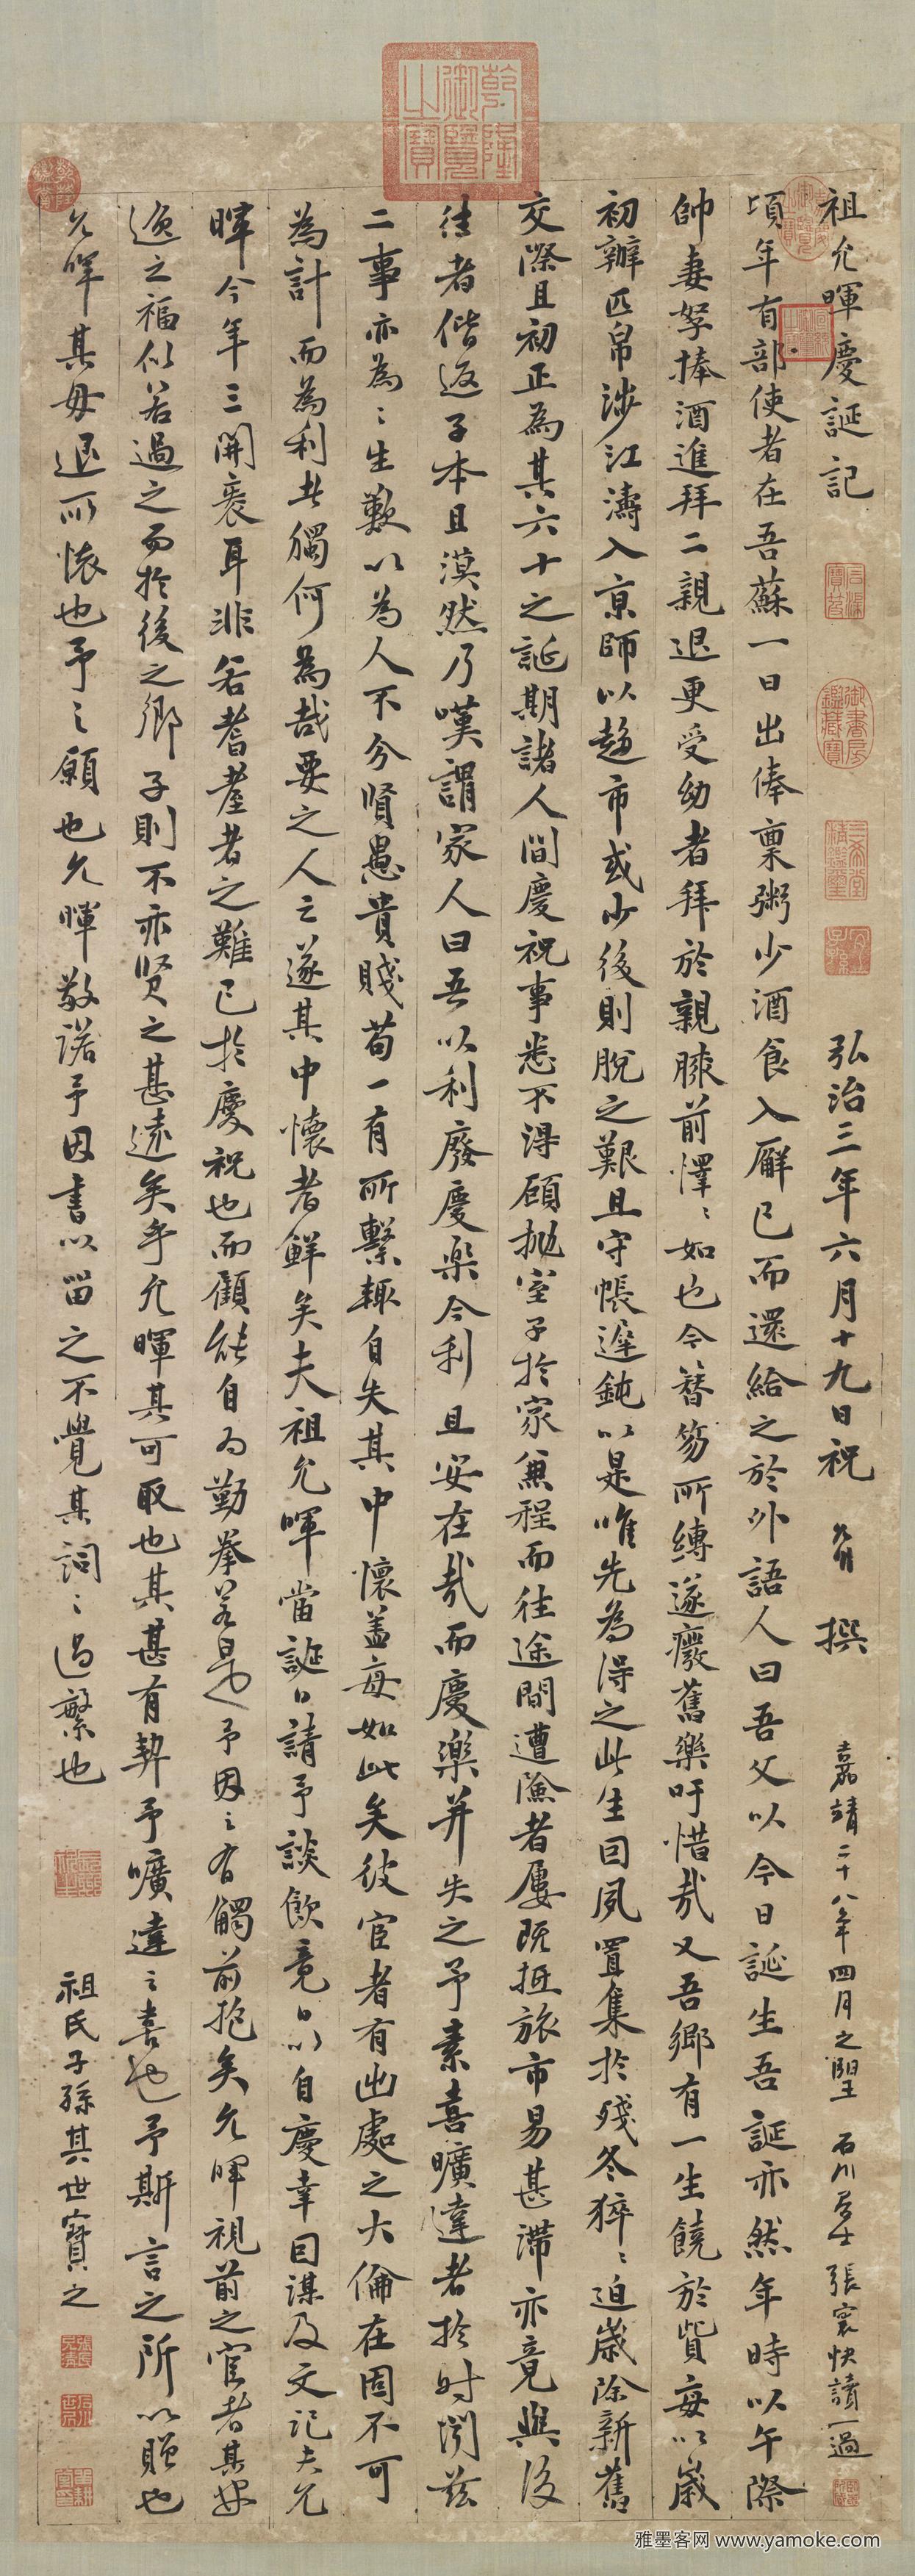 祖允暉慶誕記
弘治三年六月十九日祝允明撰
嘉靖二十八年四月之望 石川居士張寰快讀一過
頃年有部使者在吾蘇一日出俸稟粥少酒食入廨已而還給之於外語人曰吾父以今日誕生吾誕亦然年時以午際
帥妻孥捧酒進拜二親退更受幼者拜於親膝前懌〻如也今簪笏所縛遂癈舊樂吁惜哉又吾鄉有一生饒於貲每以歲
初辦匹帛涉江濤入京師以趍市或少後則脫之艱且守帳遲鈍以是唯先為得之此生囙夙置集於殘冬猝〻迫歲除新舊
交際且初正為其六十之誕期諸人間慶祝事悉不淂顧拋室子於家兼程而往途間遭險者屢既抵旅市易甚滯亦竟與後
往者偕返子本且漠然乃嘆謂家人曰吾以利廢慶樂今利且安在哉而慶樂并失之予素喜曠達者於時閔茲
二事亦為〻生歎以為人不分賢愚貴賤苟一有所繫輒自失其中懷盖每如此矣彼宦者有出處之大倫在固不可
為計而為利者獨何為哉要之人之遂其中懷者鮮矣夫祖允暉當誕日請予談飲竟日以自慶幸囙謀及文記夫允
暉今年三開袠耳非若耆耋者之難已於慶祝也而顧能自為勤拳若是也予因之有觸前抱矣允暉視前之宦者其安
逸之福似若過之而於後之鄉子則不亦賢之甚遠矣乎允暉其可取也其甚有契予曠達之喜也予斯言之所以贈也
允暉其毋退所懷也予之願也允暉敬諾予因書以留之不覺其詞〻過繁也
祖氏子孫其世寶之
乾隆御覽之寶
石渠寶笈
御書房鑑藏寶
三希堂精鑑璽
宜子孫
雅墨客网 www.yamoke.com